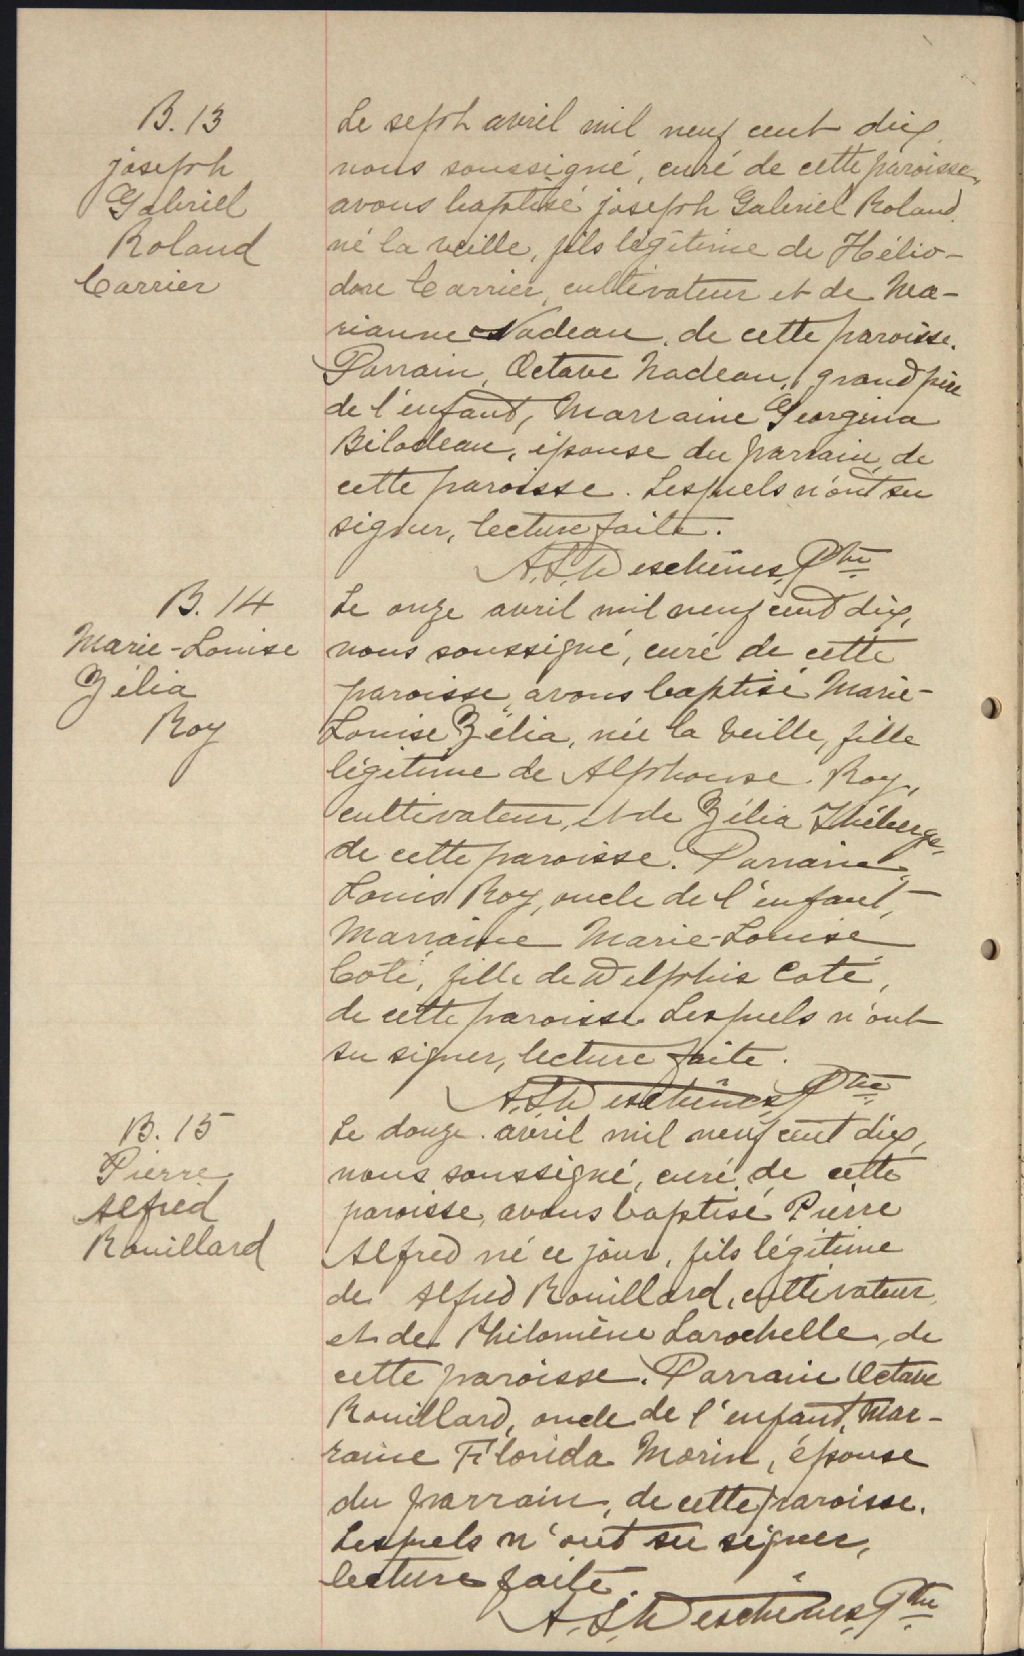 B. 13
joseph
Gabriel
Roland
Carrier
Le sept avril mil neuf cent dix,
nous soussigné, curé de cette paroisse,
avons baptisé joseph Gabriel Roland
né la veille, fils légitime de Hélio-
dore Carrier, cultivateur et de Ma-
rianne Nadeau, de cette paroisse.
Parrain, Octave Nadeau, grand père
de l'enfant, Marraine Georgina
Bilodeau, épouse du parrain, de
cette paroisse. Lesquels n'ont su
signer, lecture faite.
A. S. Deschênes Ptre
B. 14
Marie-Louise
Zélia
Roy
Le onze avril mil neuf cent dix,
nous soussigné, curé de cette
paroisse, avons baptisé Marie-
Louise Zélia, née la veille, fille
légitime de Alphonse Roy,
cultivateur, et de Zélia Théberge,
de cette paroisse. Parrain,
Louis Roy, oncle de l'enfant,
Marraine Marie-Louise
Côté, fille de Delphis Coté,
de cette paroisse. Lesquels n'ont
su signer, lecture faite.
A. S. Deschênes Ptre
B. 15
Pierre
Alfred
Rouillard
Le douze avril mil neuf cent dix,
nous soussigné, curé de cette
paroisse, avons baptisé Pierre
Alfred né ce jour, fils légitime
de Alfred Rouillard, cultivateur,
et de Philomène Larochelle, de
cette paroisse. Parrain Octave
Rouillard, oncle de l'enfant, Mar-
raine Florida Morin, épouse
du parrain, de cette paroisse.
Lesquels n'ont su signer,
lecture faite.
A. S. Deschênes Ptre